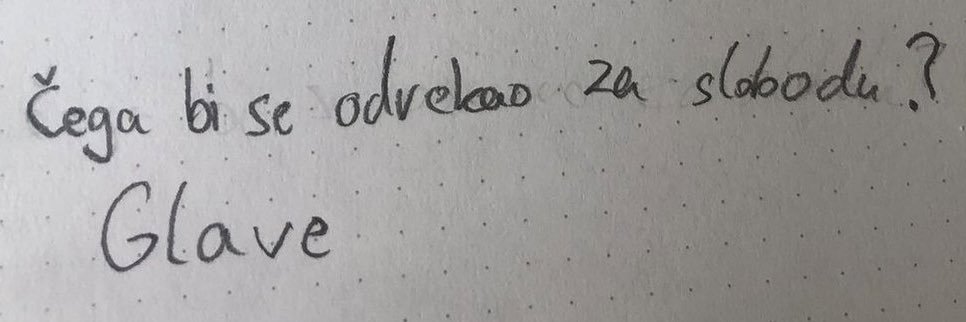 Čega bi se odrekao za slobodu?
Glave